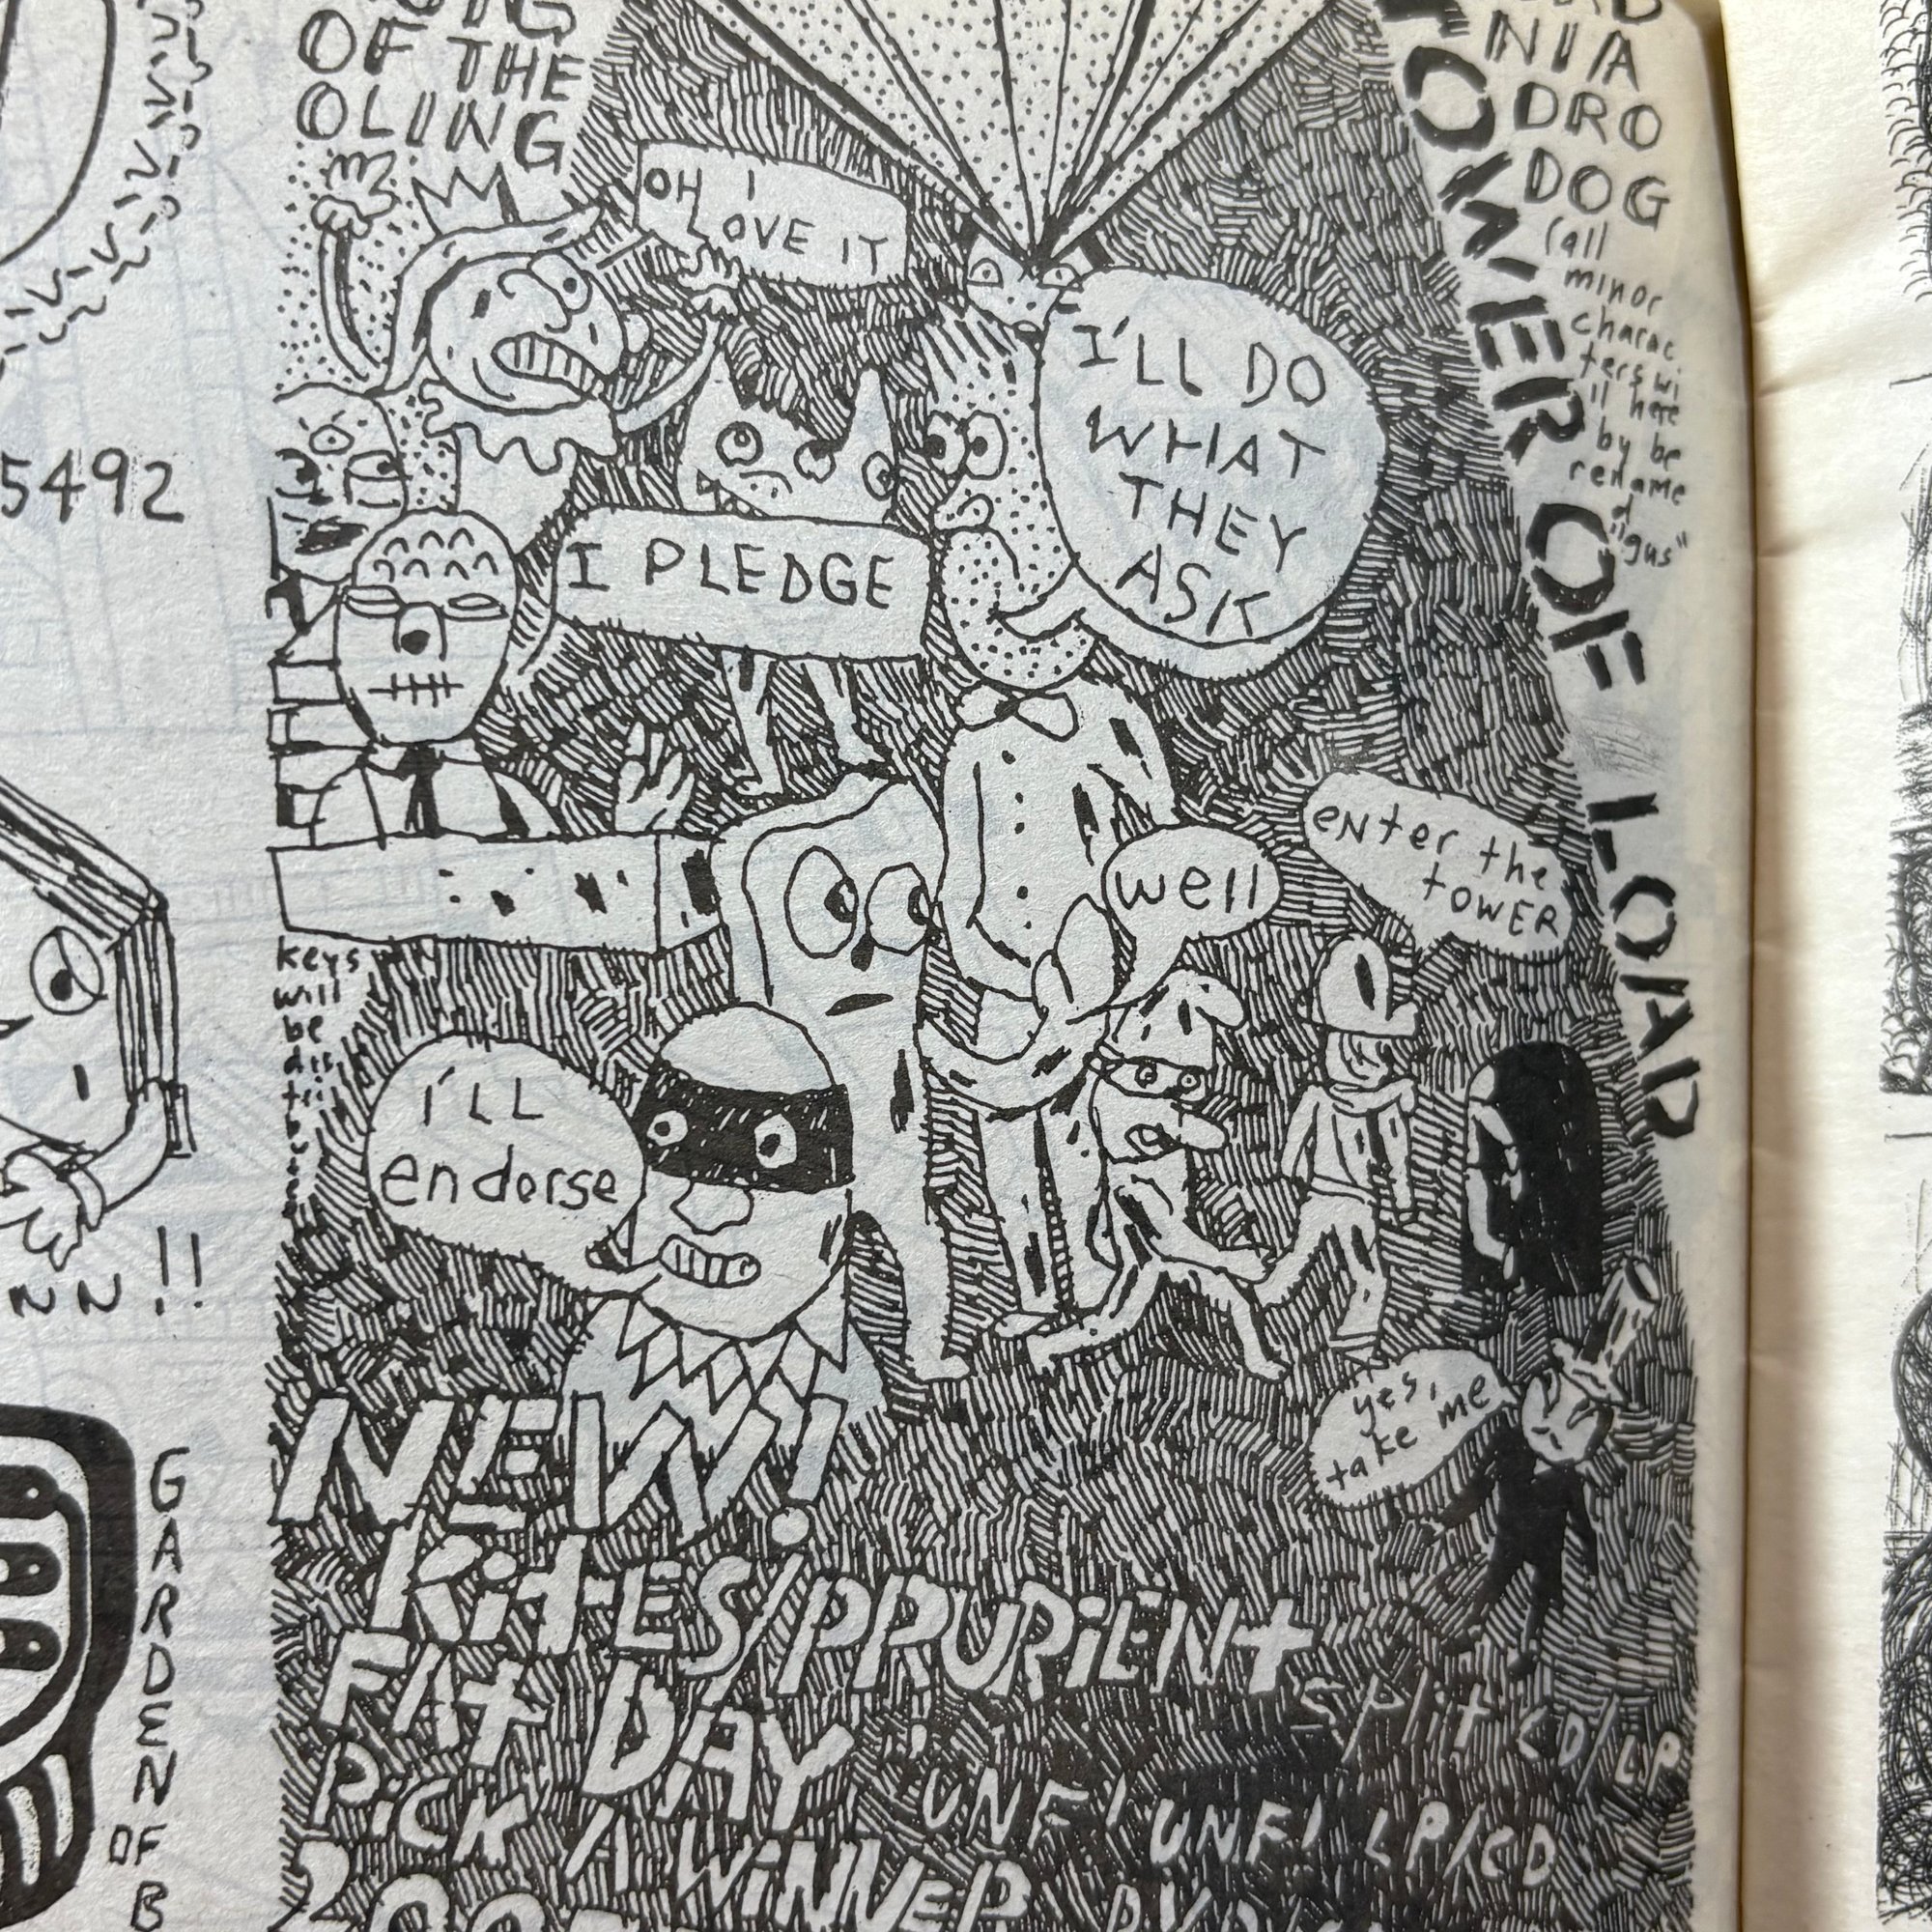 OF THE
OLING
OH I
LOVE IT
I'LL DO
WHAT
THEY
ASK
I PLEDGE
NIA
DRO
DOG
(all
minor
charac
ters wi
ll here
by be
rename
d
"gus"
TOWER OF LOAD
5492
well
enter the
TOWER
keys
will
be
dis
tri
bu
I'LL
endorse
NN!!
yes,
take me
NEW!
KitES/PPRURiENt
split CD/LP
FAt DAY
UNF! UNF! LP/CD
PiCK A WiNNER
DVD
200
GARDEN
OF
B